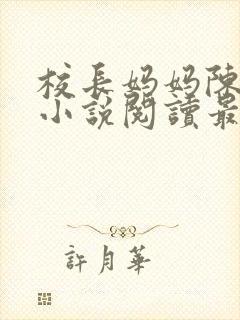 校長妈妈陳
小說閱讀最
許月華